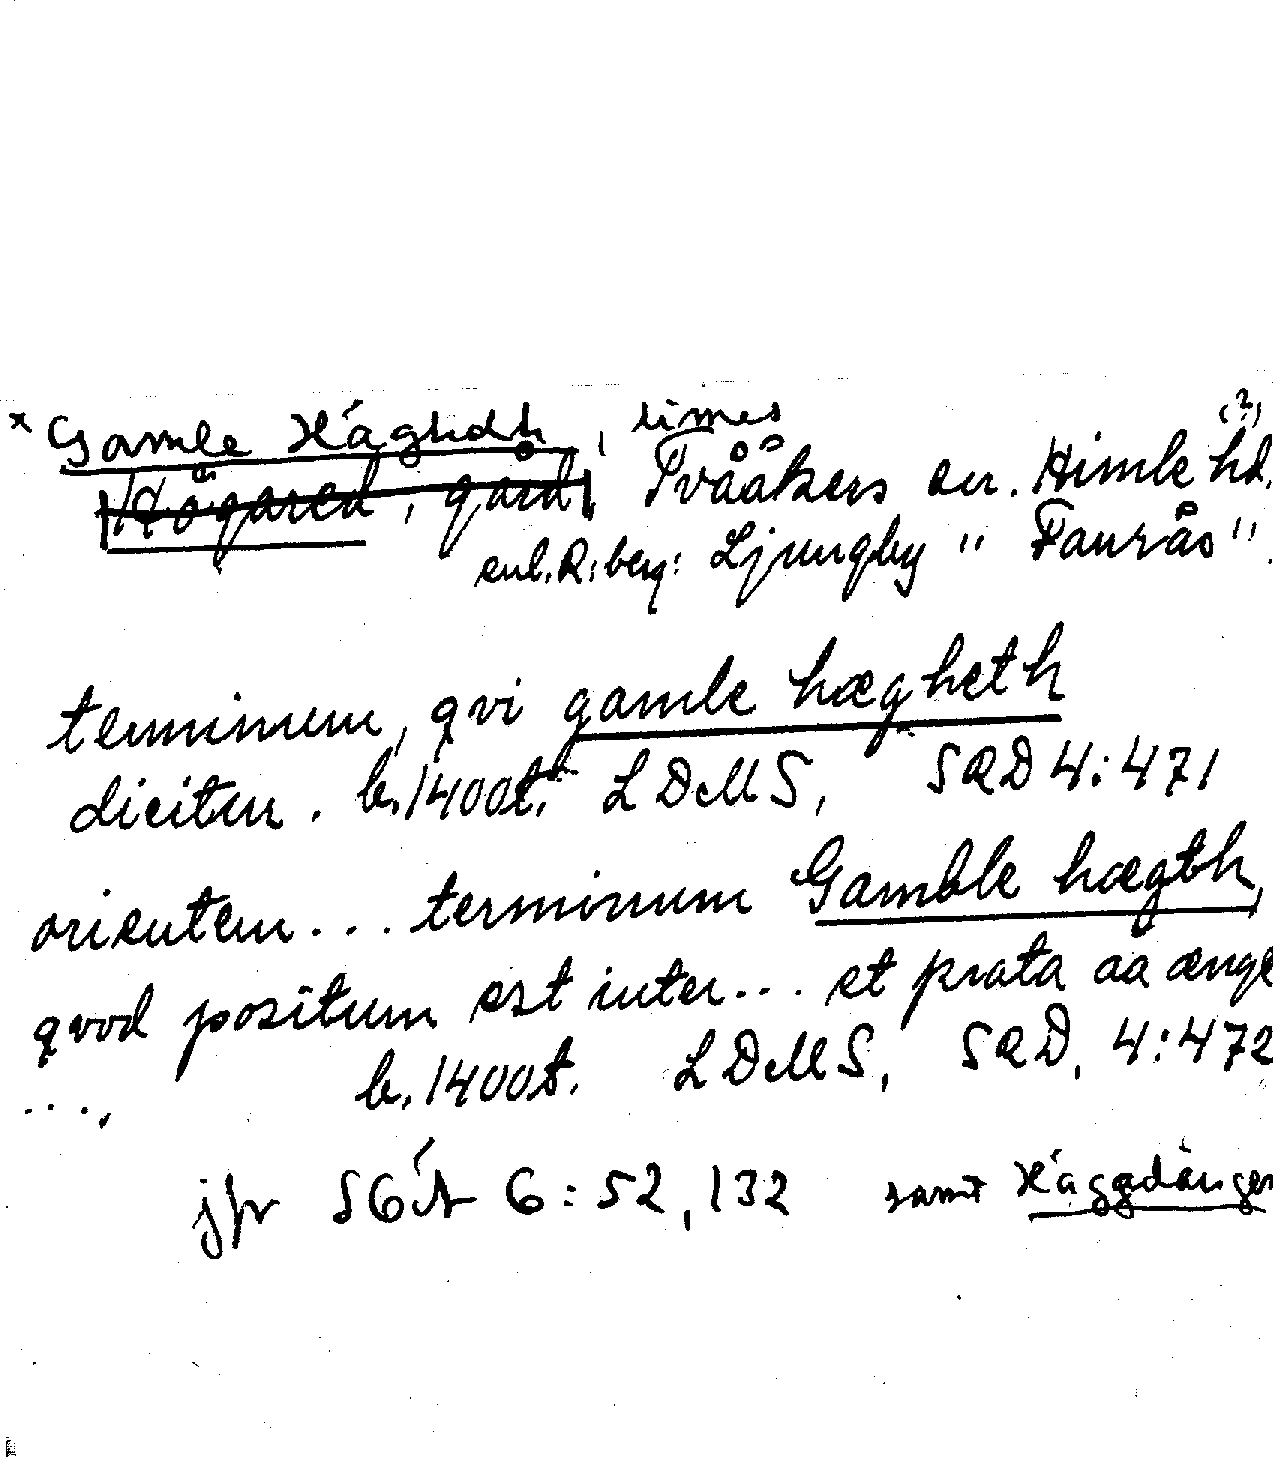 x Gamle Häghdh, limes (?)
Högared, gård, Tvååkers sn. Himle hd.
enl. R:berg: Ljungby " Faurås "
terminum, qvi gamle hægheth
dicitur. b. 1400t. LDMS, SRD 4:471
orientem... terminum Gamble hægth,
qvod positum est inter... et prata aa ænge
...., b. 1400t. LDMS, SRD, 4:472
jfr SGÅ 6:52, 132 samt Häggdånger